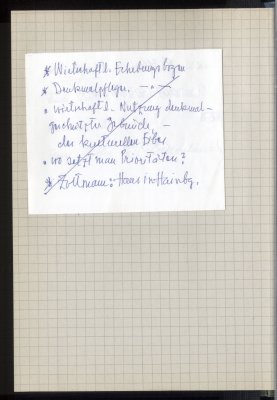 * Wirtschaftl. Erhebungsbogen
* Denkmalpfleger. — " —
• wirtschaftl. Nutzung denkmal-
geschützter Gebäude —
das kulturellen Erbes
• wo setzt man Prioritäten?
* Zollmann: Haus in Hainbg.